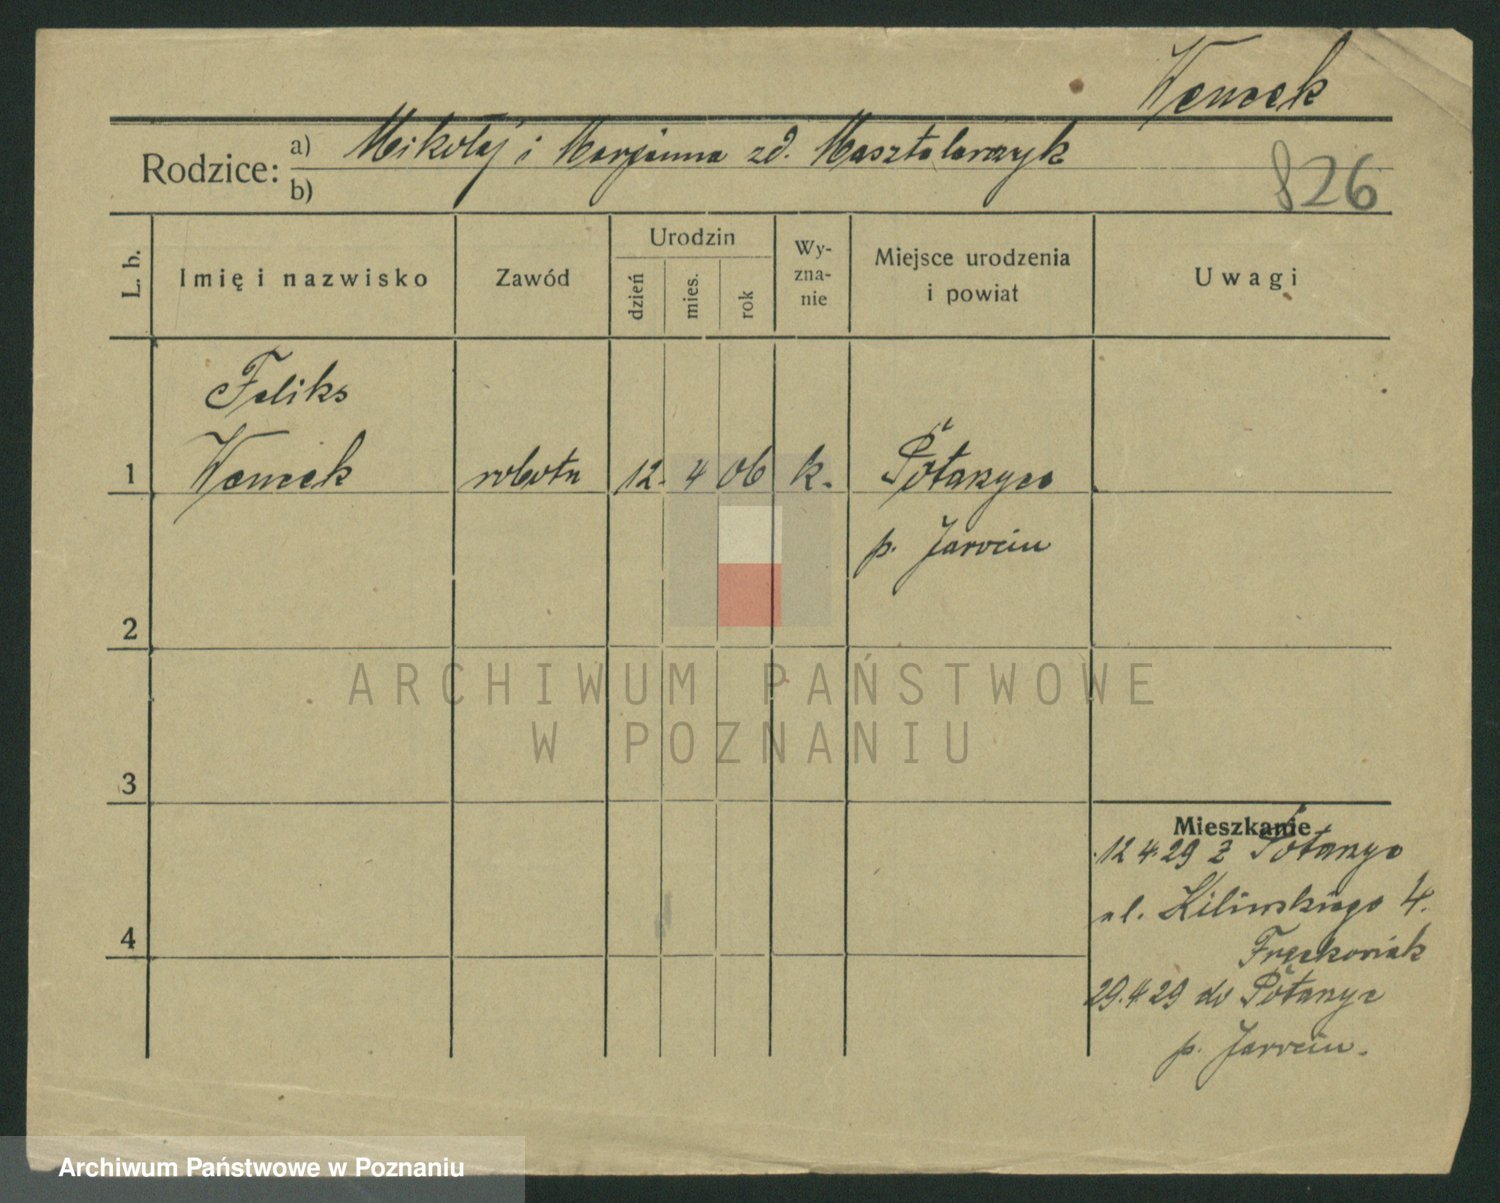 Wencek
Rodzice: a) Mikołaj i Marjanna zd. Masztalarzyk
b)
826
L. b.
Imię i nazwisko
Zawód
Urodzin
dzień
mies.
rok
Wy-
zna-
nie
Miejsce urodzenia
i powiat
Uwagi
Feliks
1 Wencek robotn 12. 4 06 k. Potarzyca
p. Jarocin
2
ARCHIWUM PAŃSTWOWE
W POZNANIU
3
Mieszkanie
12.4.29 z Potarzyc
4
ul. Kilińskiego 4.
Frąckowiak
29.4.29 do Potarzyc
p. Jarocin.
Archiwum Państwowe w Poznaniu